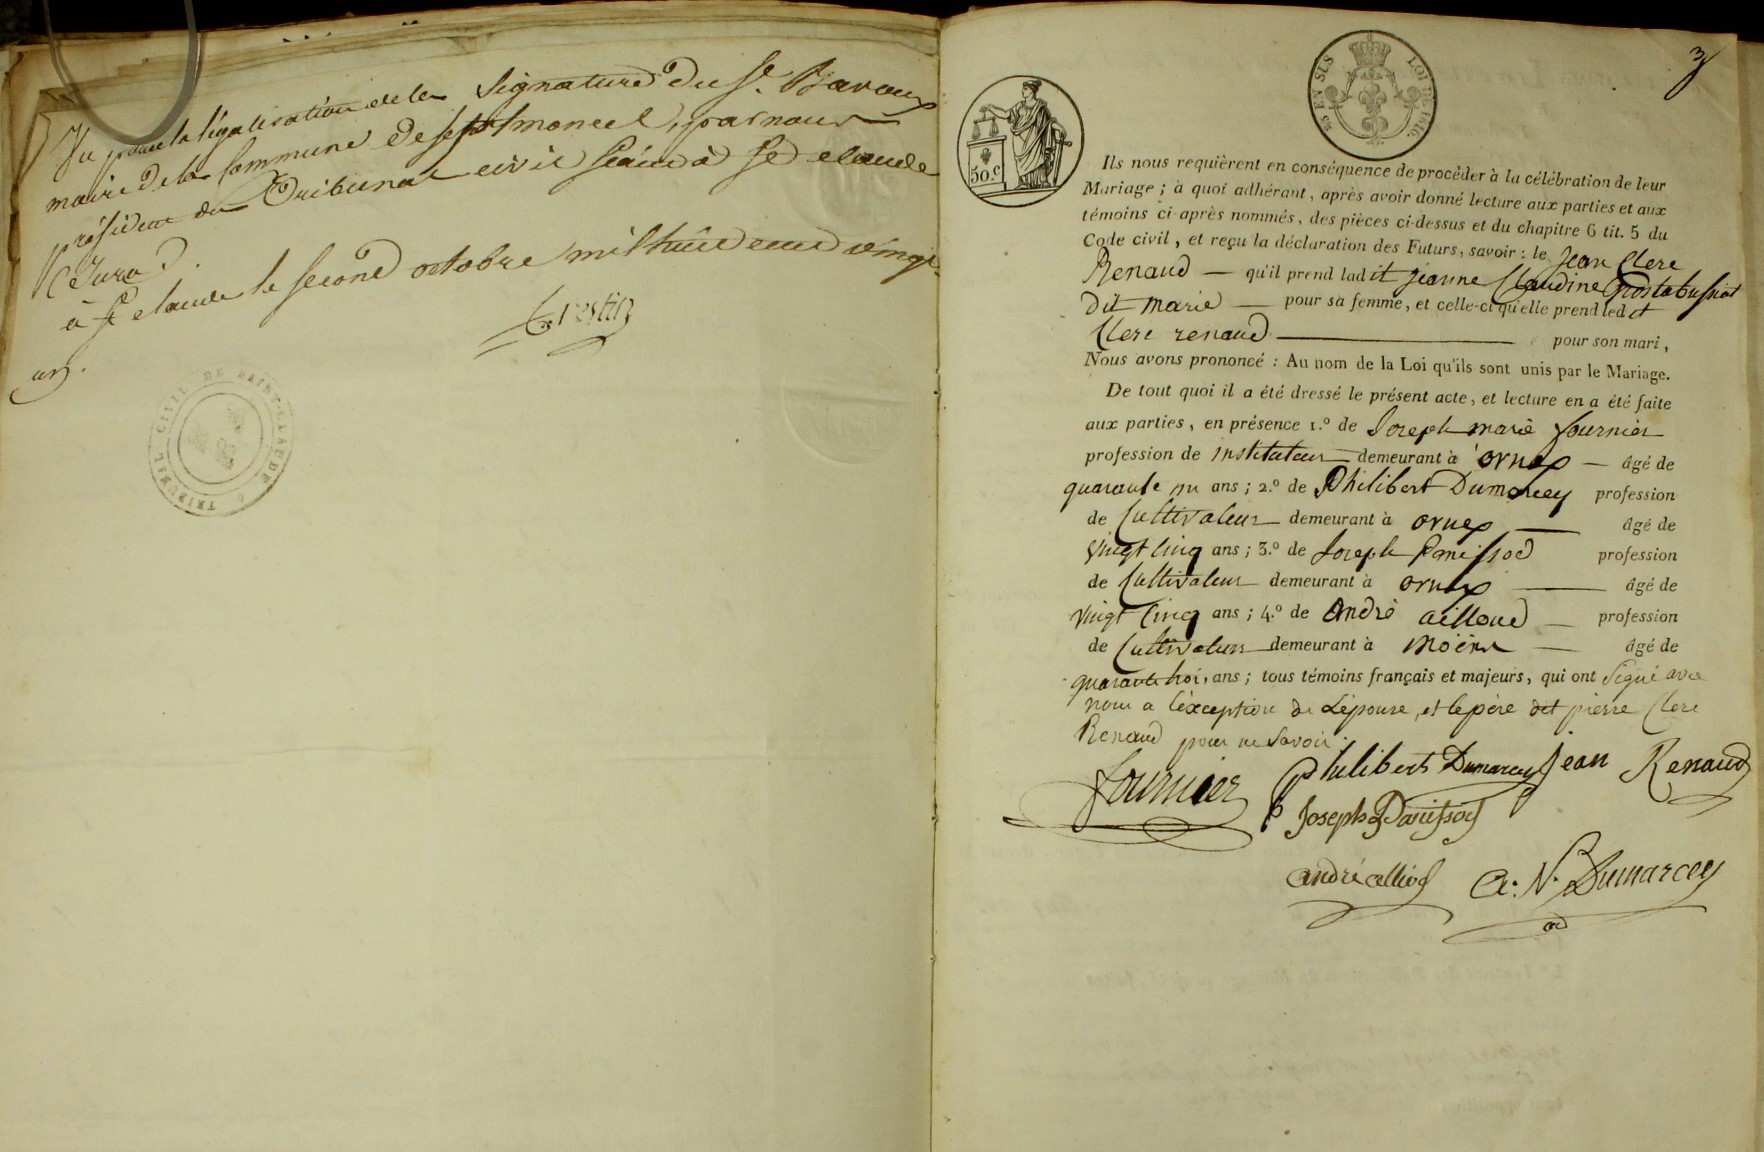 Vu pour la légalisation de la Signature du Sr. Bavoux
maire de la Commune de Septmoncel, par nous
président du Tribunal civil séant à St. claude
Jura.
à St. claude le second octobre mil huit cent vingt
un.
Crestin
TRIBUNAL CIVIL DE SAINT-CLAUDE
3
50.c
LOI DE 1816.
Ils nous requièrent en conséquence de procéder à la célébration de leur
Mariage ; à quoi adhérant, après avoir donné lecture aux parties et aux
témoins ci-après nommés, des pièces ci-dessus et du chapitre 6 tit. 5 du
Code civil, et reçu la déclaration des Futurs, savoir : le Jean Clerc
Renaud — qu'il prend ladit Jeanne Claudine
dit marie — pour sa femme, et celle-ci qu'elle prend led it
Clerc renaud — pour son mari,
Nous avons prononcé : Au nom de la Loi qu'ils sont unis par le Mariage.
De tout quoi il a été dressé le présent acte, et lecture en a été faite
aux parties, en présence 1.º de Joseph marie fournier
profession de instituteur demeurant à ornex — âgé de
quarante un ans ; 2.º de Philibert Dumarcey profession
de Cultivateur demeurant à ornex — âgé de
vingt cinq ans ; 3.º de Joseph Panissod profession
de Cultivateur demeurant à ornex — âgé de
vingt cinq ans ; 4.º de André ailloud — profession
de Cultivateur demeurant à moëns — âgé de
quarante trois ans ; tous témoins français et majeurs, qui ont signé avec
nous a l'exception de L'épouse, et le père dit pierre Clerc
Renaud pour ne savoir.
fournier Philibert Dumarcey Jean Renaud
Joseph Panissod
andré alliod A. N. Dumarcey